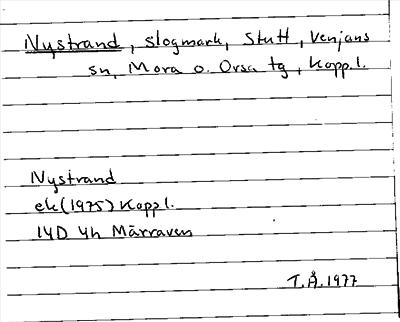 Nystrand, slogmark, Stutt, Venjans
sn, Mora o. Orsa tg, Kopp.l.
Nystrand
ek (1975) Kopp l.
14D 4h Märraven
T.Å. 1977